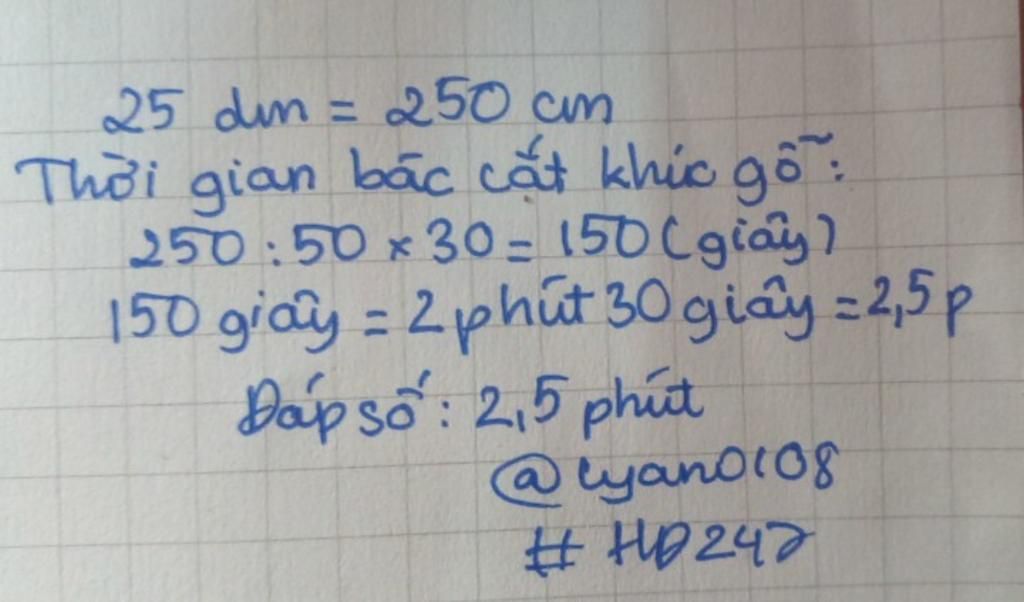 25 dm = 250 cm
Thời gian bác cắt khúc gỗ:
250 : 50 x 30 = 150 (giây)
150 giây = 2 phút 30 giây = 2,5 p
Đáp số: 2,5 phút
@lyan0108
# HĐ247